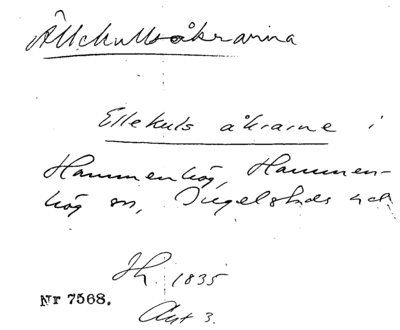 Ällekullsåkrarna
Ellekuls åkrarne i
Hammenhög, Hammen-
hög sn, Ingelstads hd
Jh. 1835
Nr 7568.
Akt 3.